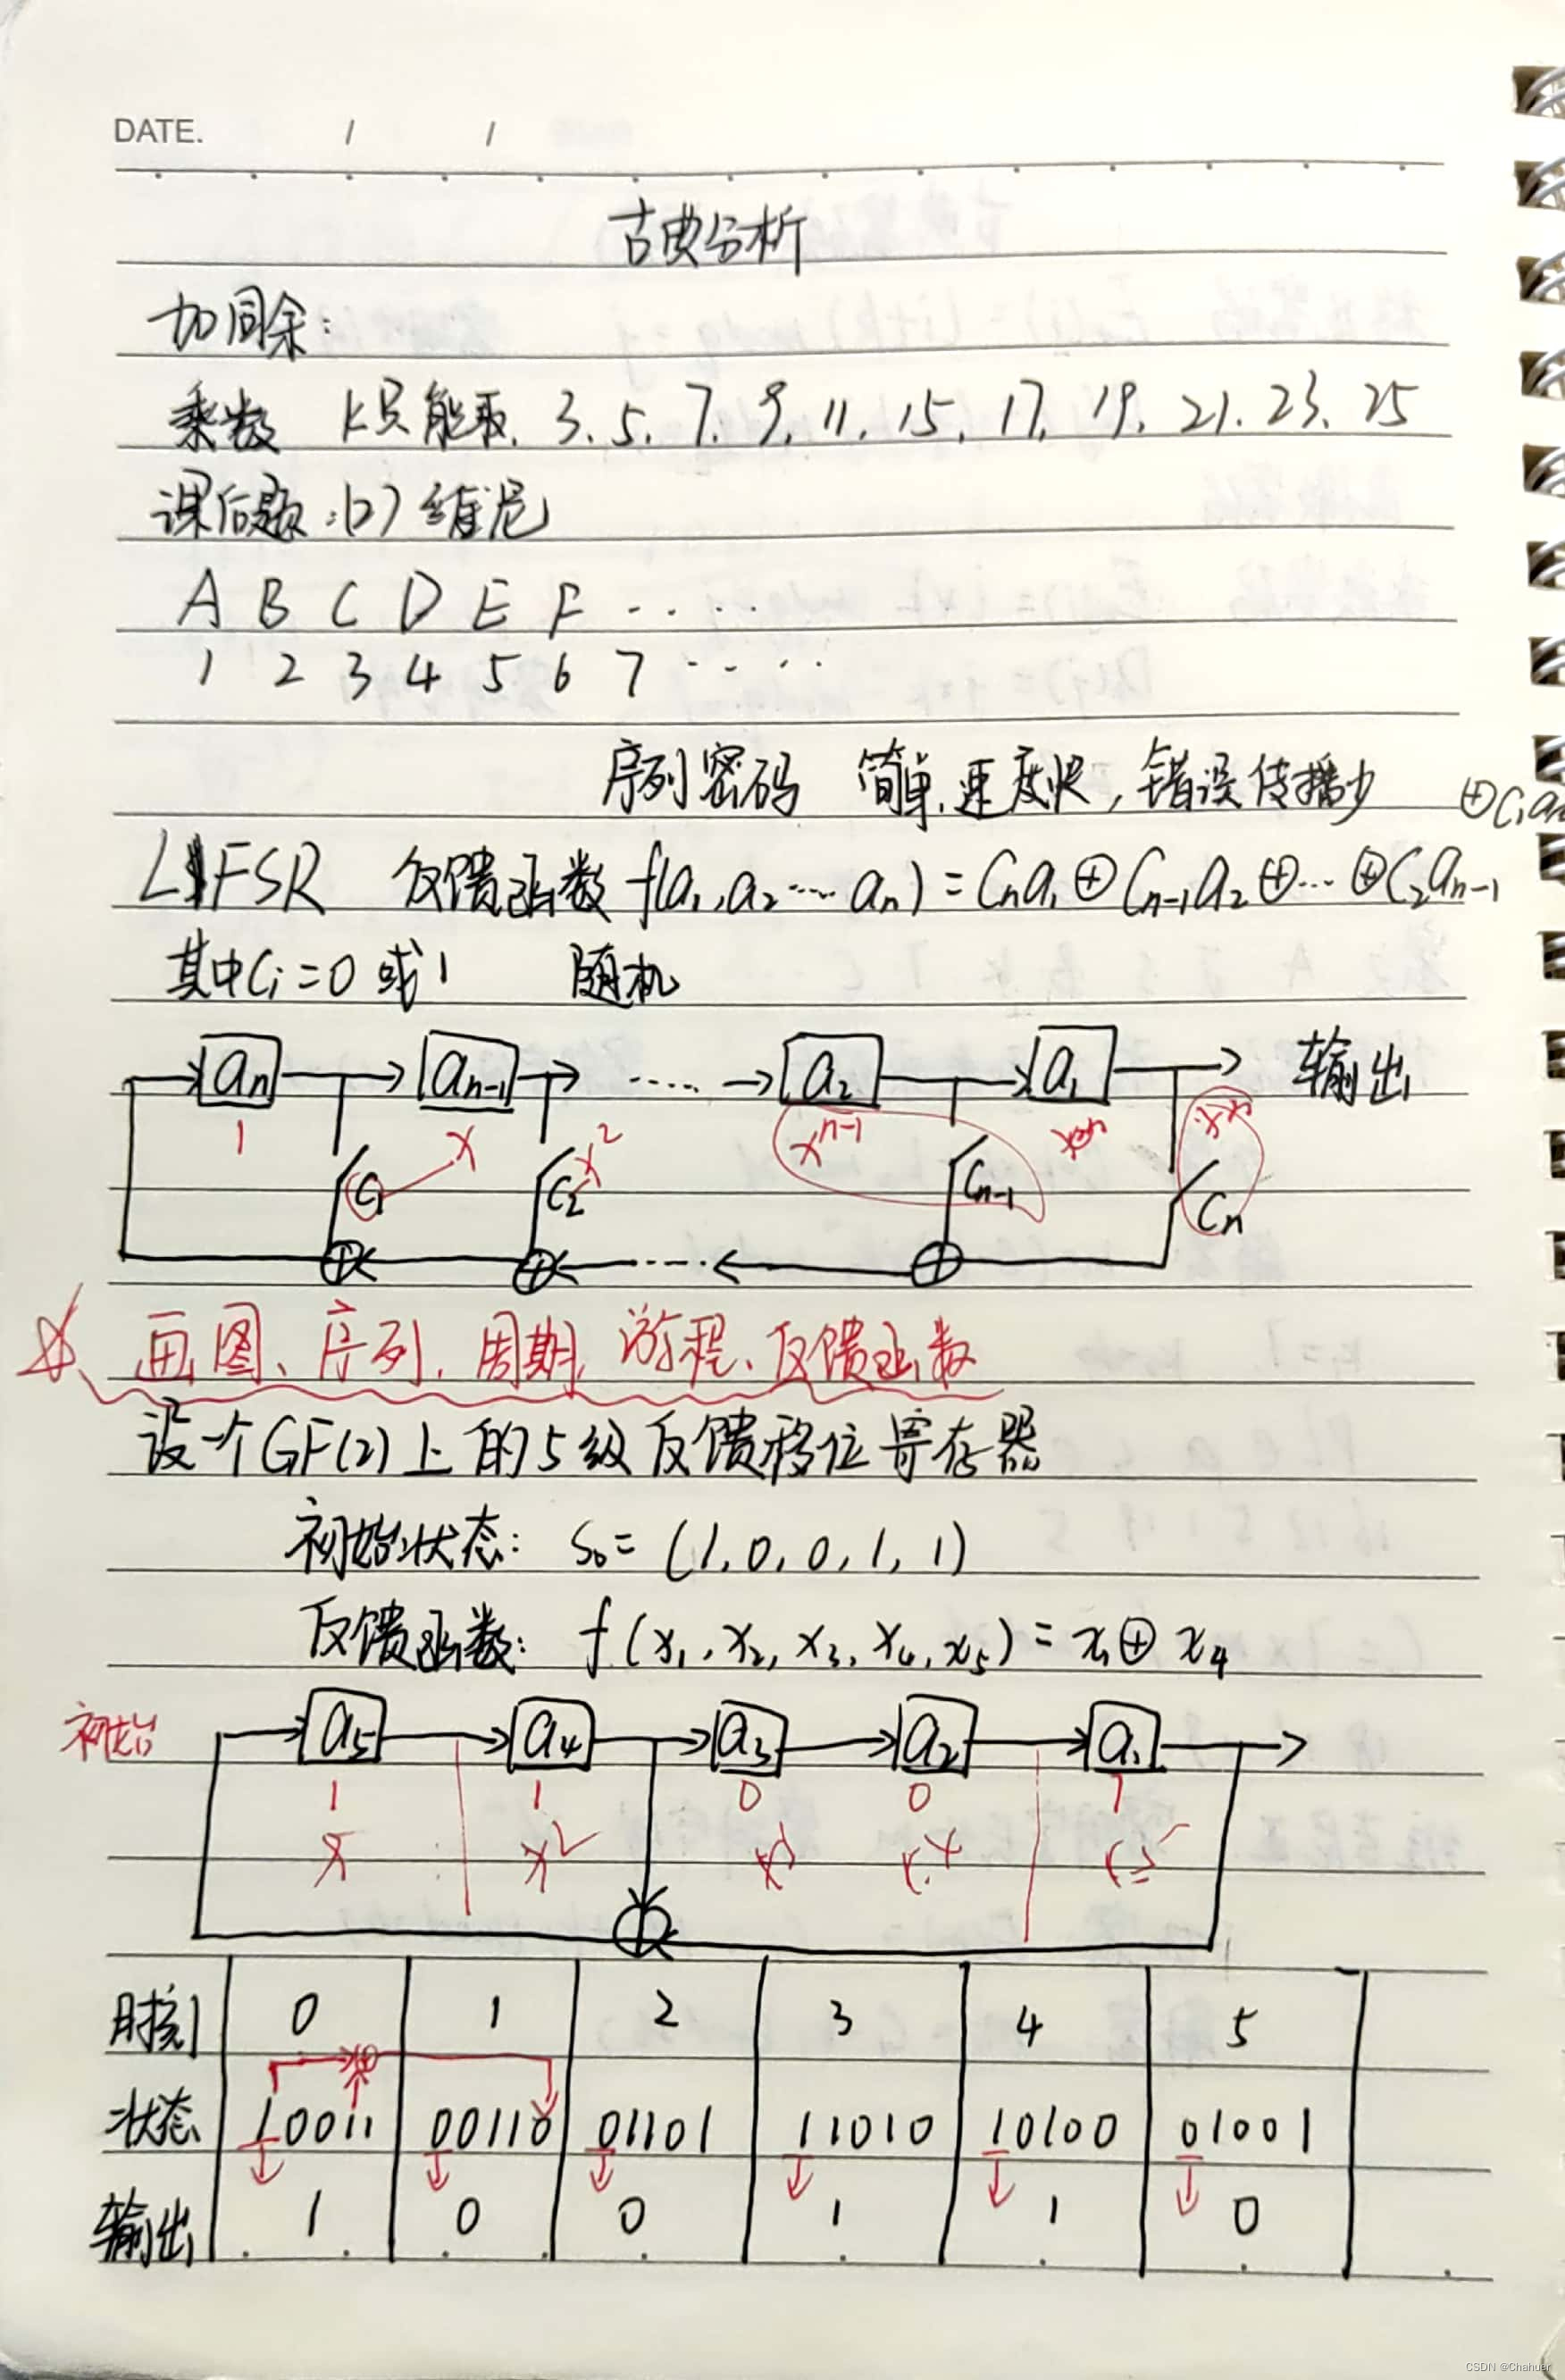 DATE. / /
古典分析
加同余:
乘数 k只能取. 3、5、7、9、11、15、17、19、21、23、25
课后题:(2) 维尼
A B C D E F ·····
1 2 3 4 5 6 7 ·····
序列密码 简单,速度快,错误传播少
⊕C₁a
LFSR 反馈函数 f(a₁,a₂…aₙ)=Cₙa₁⊕Cₙ₋₁a₂⊕…⊕C₂aₙ₋₁
其中Cᵢ=0或1 随机
aₙ aₙ₋₁ ····· a₂ a₁ 输出
1 x x² xⁿ⁻¹ xⁿ
C₁ C₂ Cₙ₋₁ Cₙ
画图、序列、周期、游程、反馈函数
设一个GF(2)上的5级反馈移位寄存器
初始状态: S₀=(1,0,0,1,1)
反馈函数: f(x₁,x₂,x₃,x₄,x₅)=x₁⊕x₄
初始 a₅ a₄ a₃ a₂ a₁
1 1 0 0 1
x x² x³ x⁴ x⁵
时刻 0 1 2 3 4 5
状态 10011 00110 01101 11010 10100 01001
输出 1 0 0 1 1 0
CSDN @Chahuer